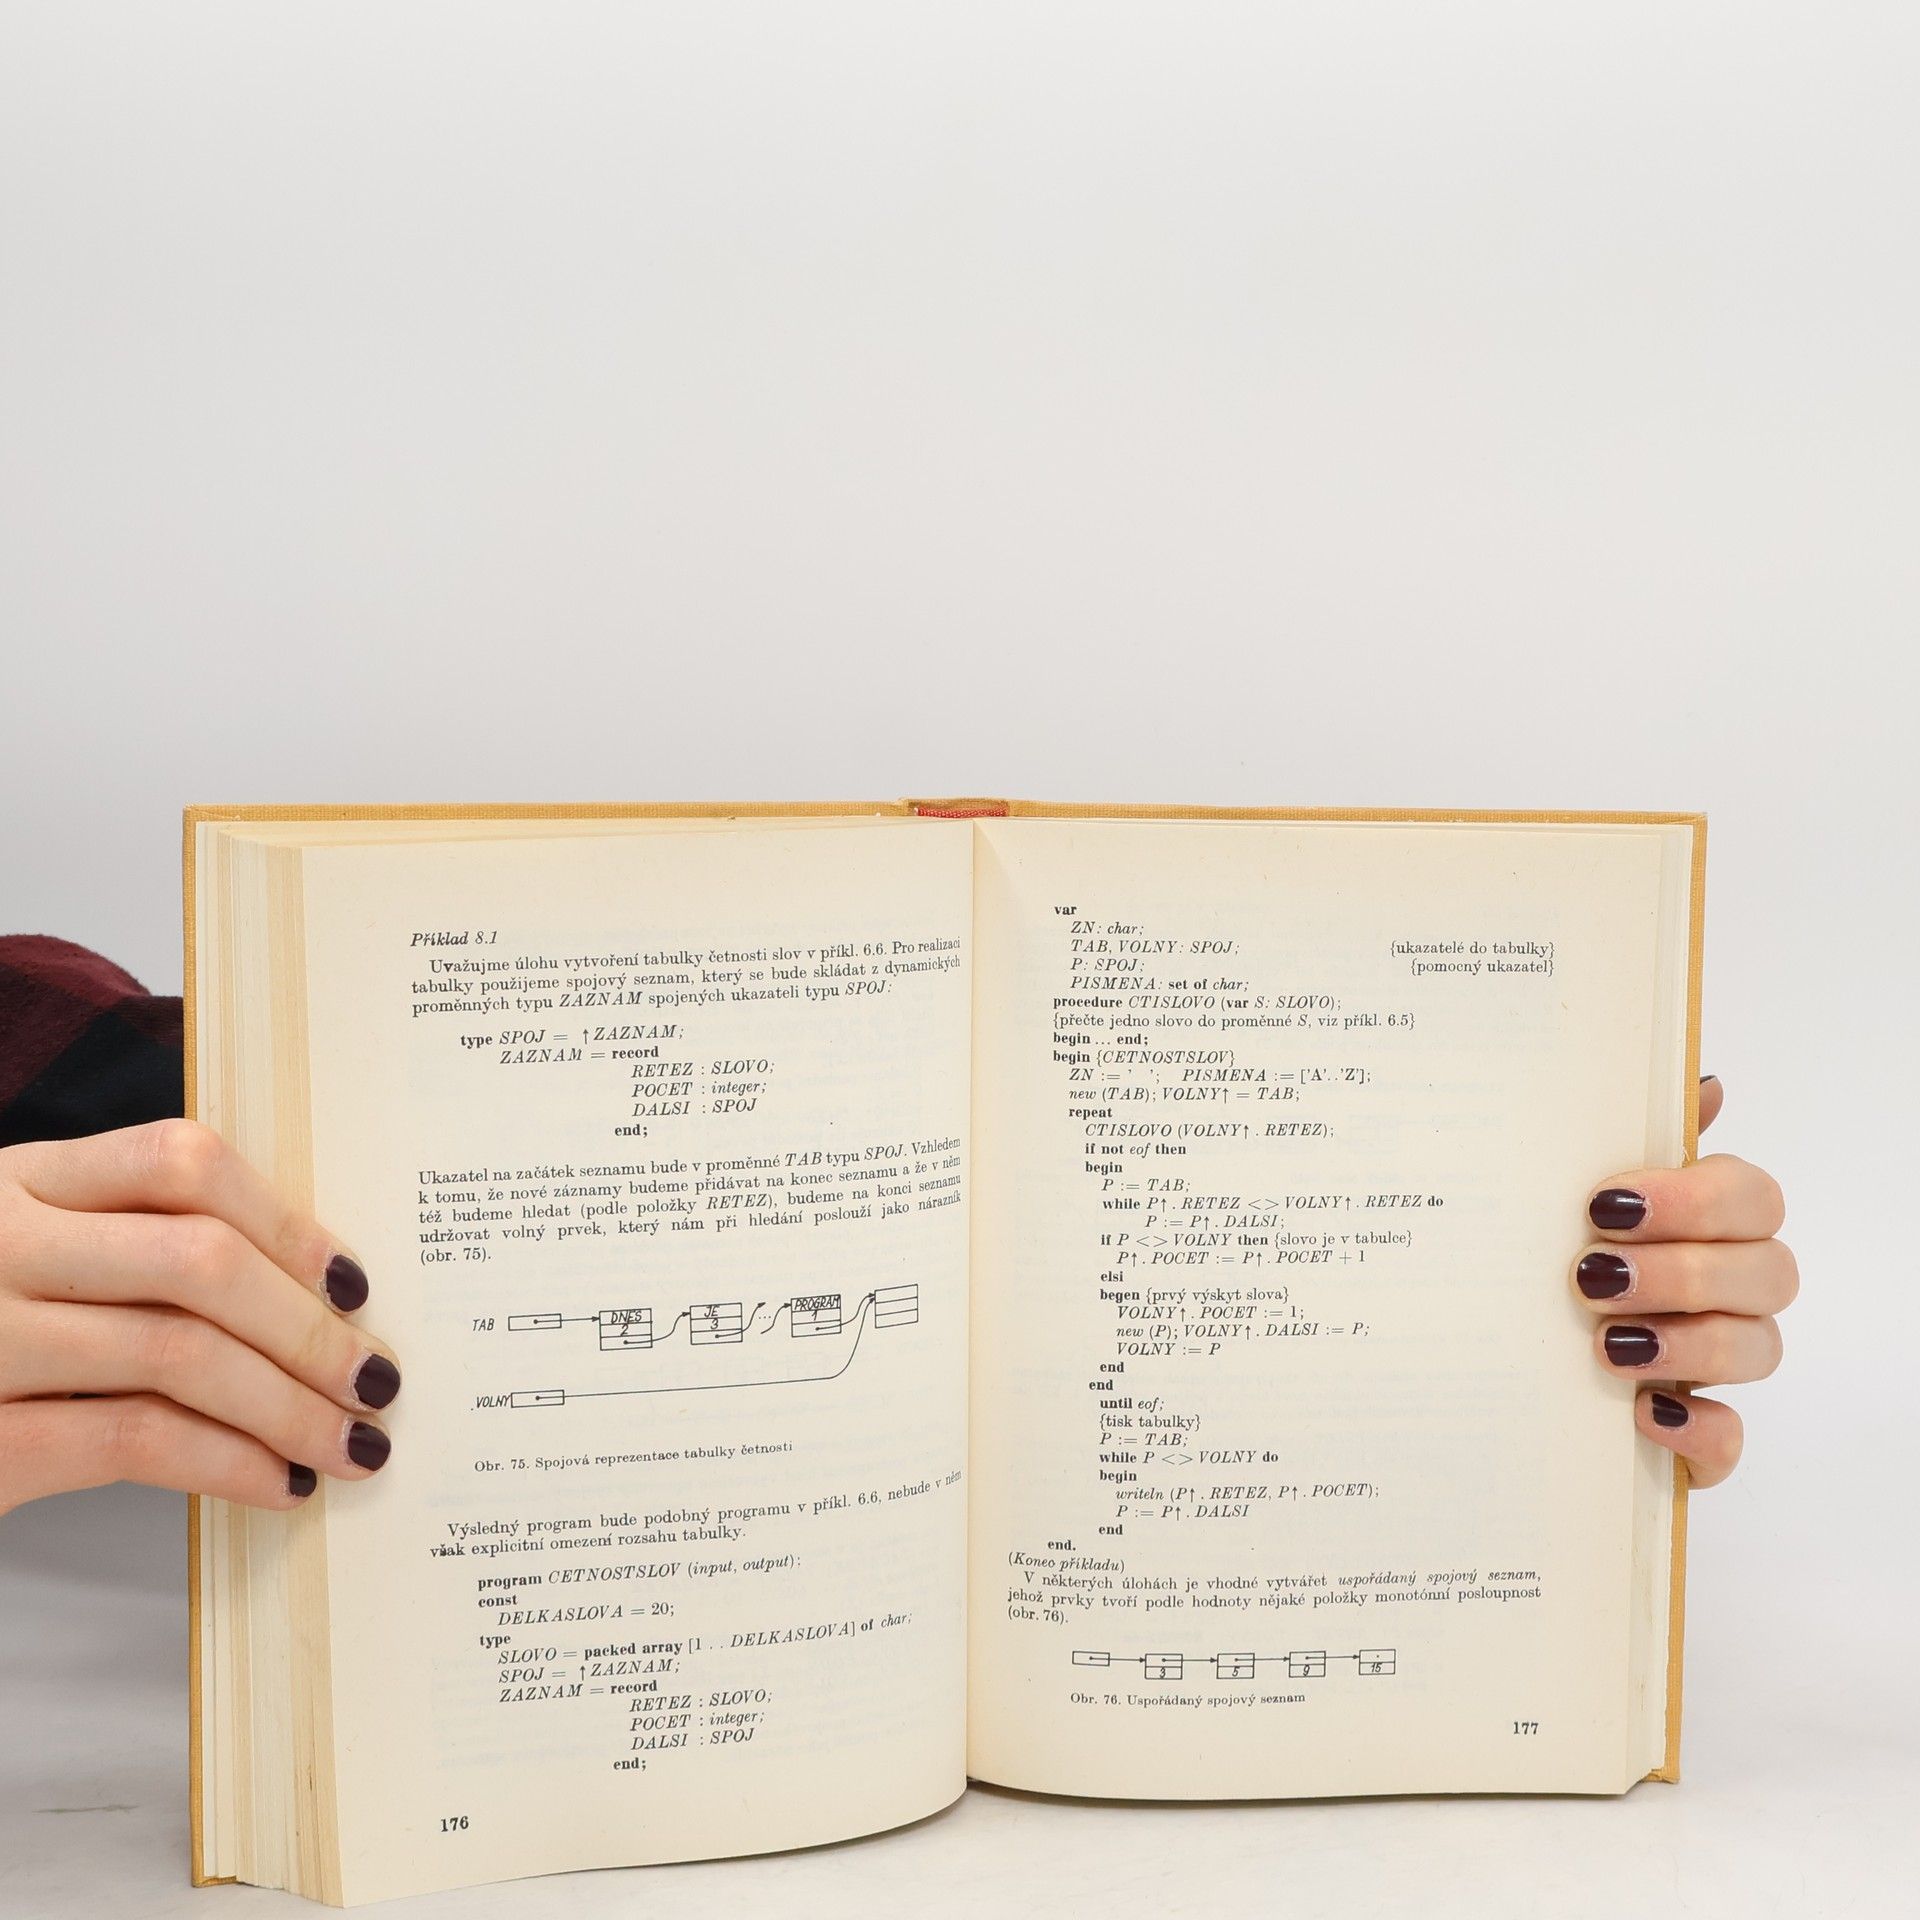 Příklad 8.1
Uvažujme úlohu vytvoření tabulky četnosti slov v příkl. 6.6. Pro realizaci
tabulky použijeme spojový seznam, který se bude skládat z dynamických
proměnných typu ZAZNAM spojených ukazateli typu SPOJ:
type SPOJ = ↑ZAZNAM;
ZAZNAM = record
RETEZ : SLOVO;
POCET : integer;
DALSI : SPOJ
end;
Ukazatel na začátek seznamu bude v proměnné TAB typu SPOJ. Vzhledem
k tomu, že nové záznamy budeme přidávat na konec seznamu a že v něm
též budeme hledat (podle položky RETEZ), budeme na konci seznamu
udržovat volný prvek, který nám při hledání poslouží jako nárazník
(obr. 75).
TAB DNES JE ... PROGRAM
2 3 1
VOLNY
Obr. 75. Spojová reprezentace tabulky četnosti
Výsledný program bude podobný programu v příkl. 6.6, nebude v něm
však explicitní omezení rozsahu tabulky.
program CETNOSTSLOV (input, output):
const
DELKASLOVA = 20;
type
SLOVO = packed array [1 . . DELKASLOVA] of char;
SPOJ = ↑ZAZNAM;
ZAZNAM = record
RETEZ : SLOVO;
POCET : integer;
DALSI : SPOJ
end;
176
var
ZN: char;
TAB, VOLNY: SPOJ; {ukazatelé do tabulky}
P: SPOJ; {pomocný ukazatel}
PISMENA: set of char;
procedure CTISLOVO (var S: SLOVO);
{přečte jedno slovo do proměnné S, viz příkl. 6.5}
begin ... end;
begin {CETNOSTSLOV}
ZN := ' '; PISMENA := ['A'..'Z'];
new (TAB); VOLNY↑ = TAB;
repeat
CTISLOVO (VOLNY↑ . RETEZ);
if not eof then
begin
P := TAB;
while P↑ . RETEZ <> VOLNY↑ . RETEZ do
P := P↑ . DALSI;
if P <> VOLNY then {slovo je v tabulce}
P↑ . POCET := P↑ . POCET + 1
elsi
begen {prvý výskyt slova}
VOLNY↑ . POCET := 1;
new (P); VOLNY↑ . DALSI := P;
VOLNY := P
end
end
until eof;
{tisk tabulky}
P := TAB;
while P <> VOLNY do
begin
writeln (P↑ . RETEZ, P↑ . POCET);
P := P↑ . DALSI
end
end.
(Konec příkladu)
V některých úlohách je vhodné vytvářet uspořádaný spojový seznam,
jehož prvky tvoří podle hodnoty nějaké položky monotónní posloupnost
(obr. 76).
3 5 9 15
Obr. 76. Uspořádaný spojový seznam
177